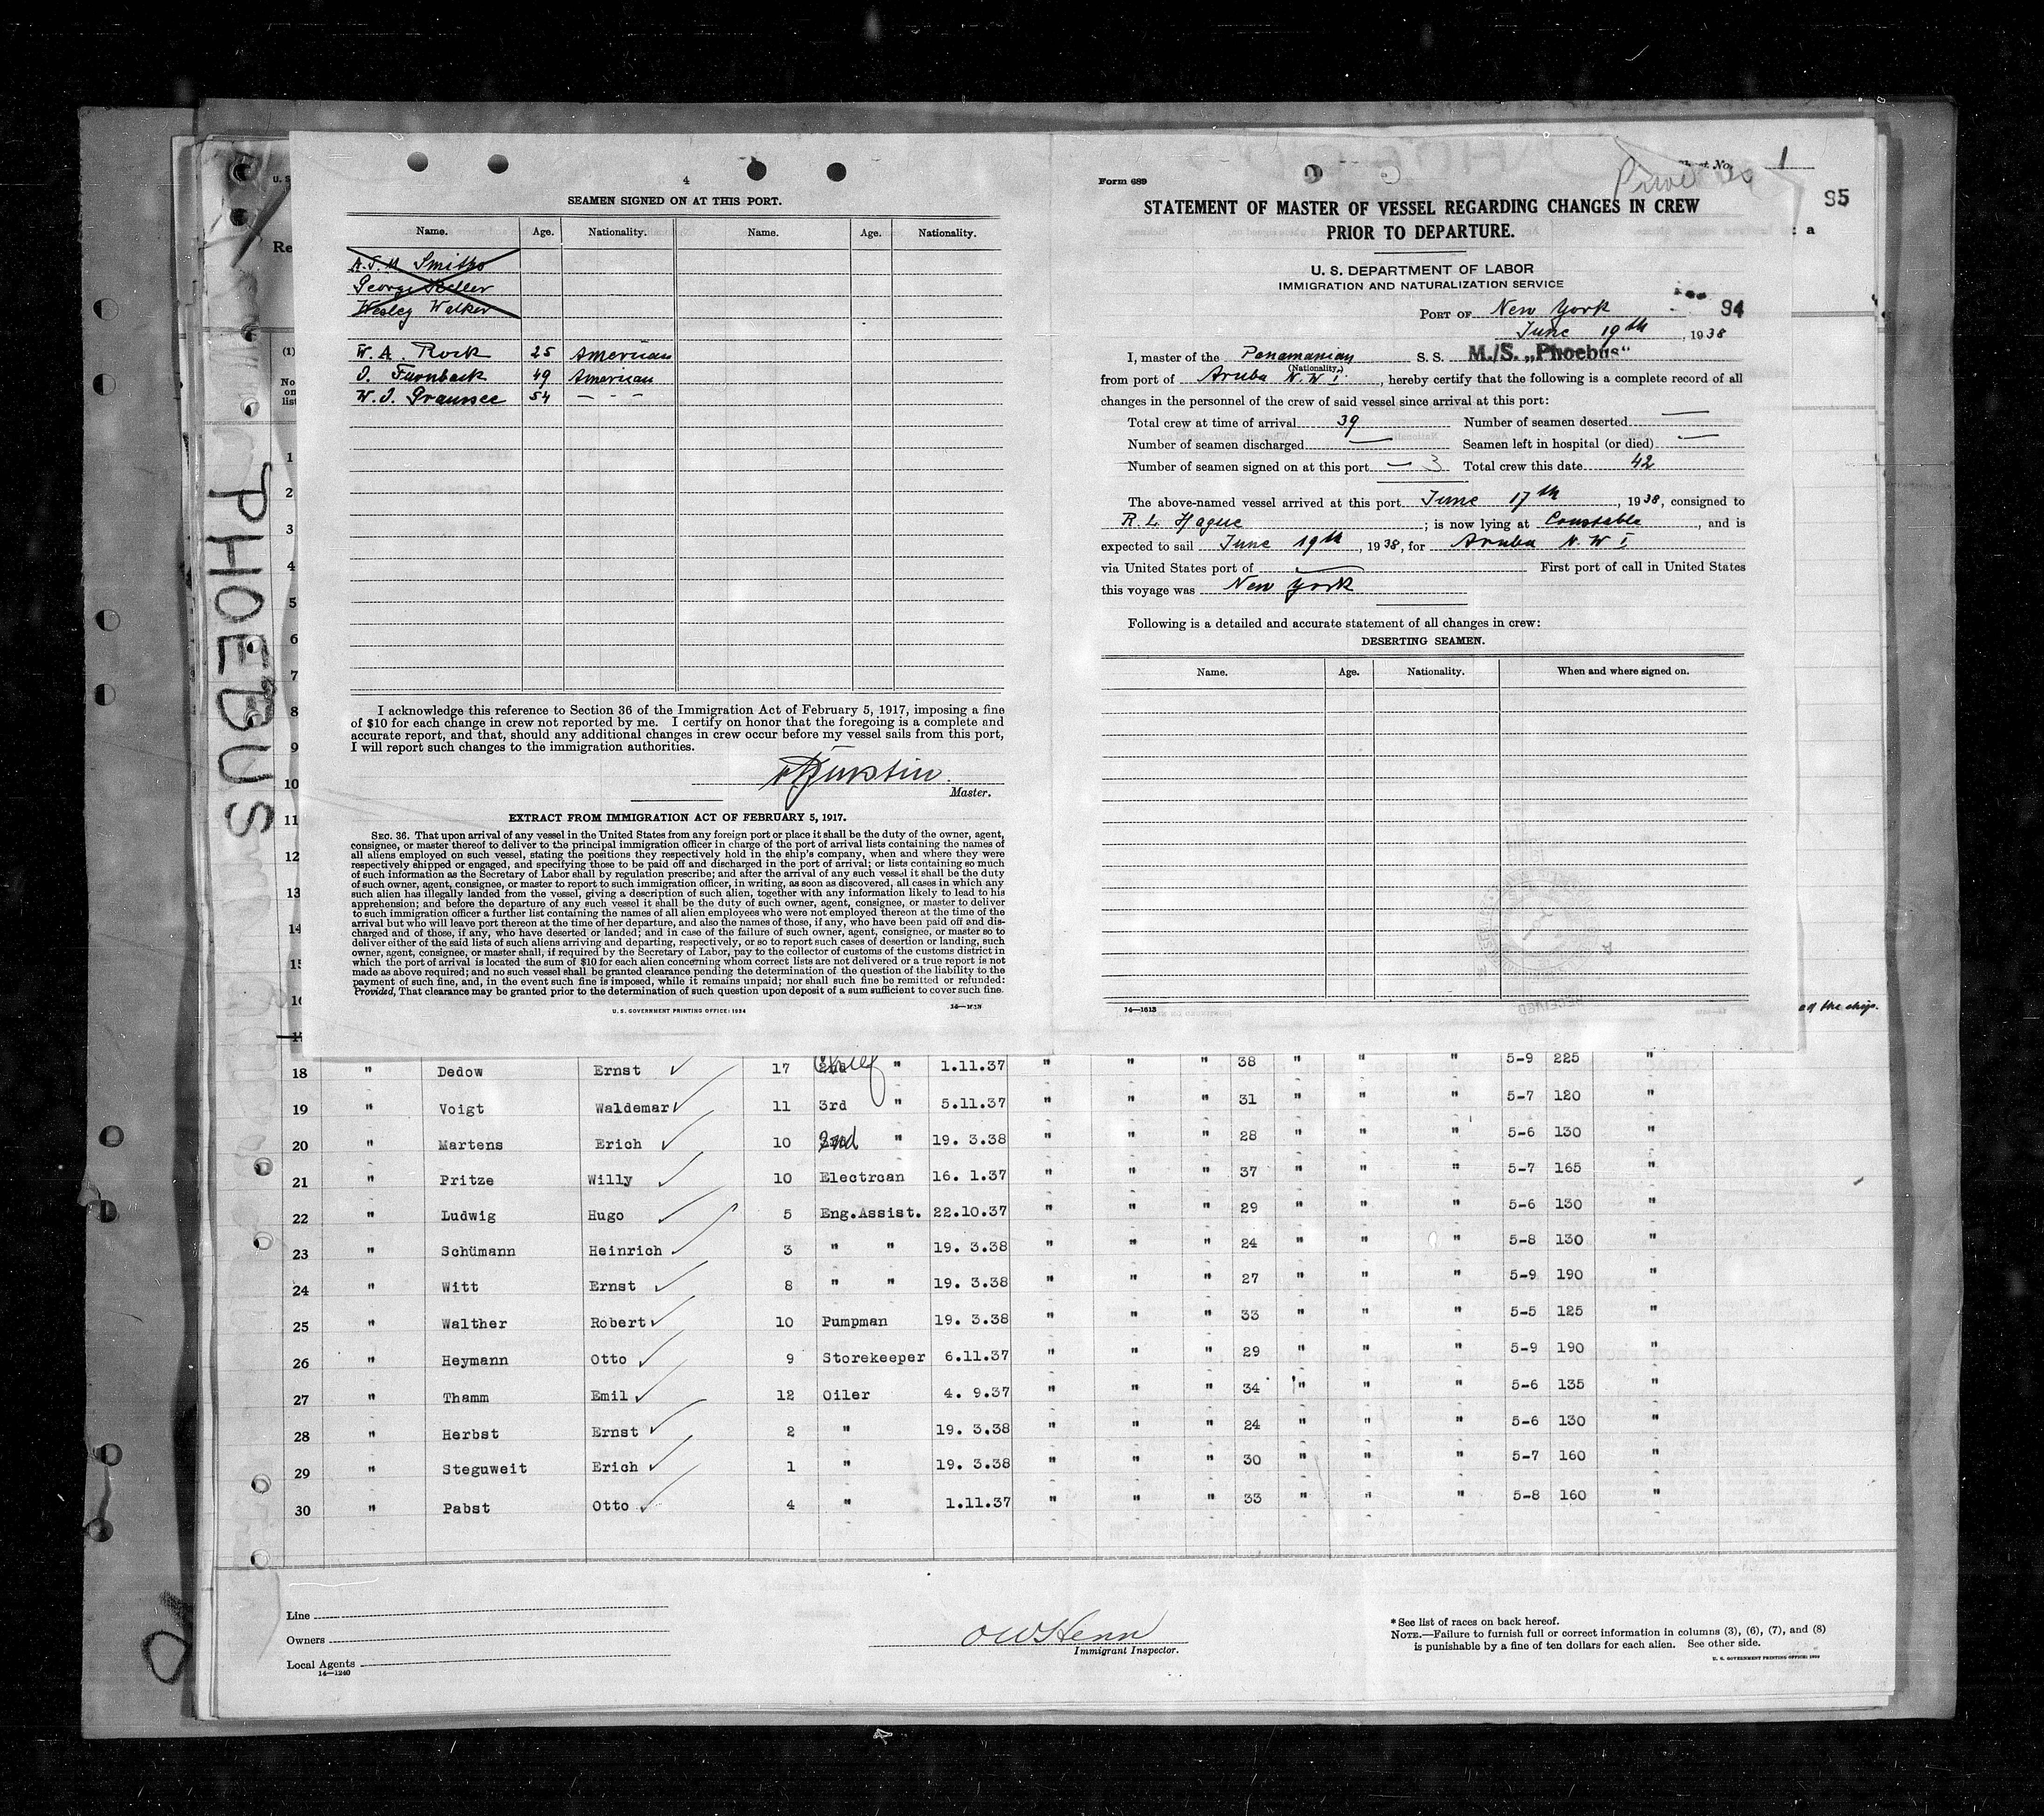 4
SEAMEN SIGNED ON AT THIS PORT.
Name. Age. Nationality. Name. Age. Nationality.
George
Wesley Walker
W. A. Rock 25 American
49 American
W. J. 54 — - -
I acknowledge this reference to Section 36 of the Immigration Act of February 5, 1917, imposing a fine
of $10 for each change in crew not reported by me. I certify on honor that the foregoing is a complete and
accurate report, and that, should any additional changes in crew occur before my vessel sails from this port,
I will report such changes to the immigration authorities.
Master.
EXTRACT FROM IMMIGRATION ACT OF FEBRUARY 5, 1917.
SEC. 36. That upon arrival of any vessel in the United States from any foreign port or place it shall be the duty of the owner, agent,
consignee, or master thereof to deliver to the principal immigration officer in charge of the port of arrival lists containing the names of
all aliens employed on such vessel, stating the positions they respectively hold in the ship's company, when and where they were
respectively shipped or engaged, and specifying those to be paid off and discharged in the port of arrival; or lists containing so much
of such information as the Secretary of Labor shall by regulation prescribe; and after the arrival of any such vessel it shall be the duty
of such owner, agent, consignee, or master to report to such immigration officer, in writing, as soon as discovered, all cases in which any
such alien has illegally landed from the vessel, giving a description of such alien, together with any information likely to lead to his
apprehension; and before the departure of any such vessel it shall be the duty of such owner, agent, consignee, or master to deliver
to such immigration officer a further list containing the names of all alien employees who were not employed thereon at the time of the
arrival but who will leave port thereon at the time of her departure, and also the names of those, if any, who have been paid off and dis-
charged and of those, if any, who have deserted or landed; and in case of the failure of such owner, agent, consignee, or master so to
deliver either of the said lists of such aliens arriving and departing, respectively, or so to report such cases of desertion or landing, such
owner, agent, consignee, or master shall, if required by the Secretary of Labor, pay to the collector of customs of the customs district in
which the port of arrival is located the sum of $10 for each alien concerning whom correct lists are not delivered or a true report is not
made as above required; and no such vessel shall be granted clearance pending the determination of the question of the liability to the
payment of such fine, and, in the event such fine is imposed, while it remains unpaid; nor shall such fine be remitted or refunded:
Provided, That clearance may be granted prior to the determination of such question upon deposit of a sum sufficient to cover such fine.
U.S. GOVERNMENT PRINTING OFFICE: 1934
Form 689
No. 1
95
STATEMENT OF MASTER OF VESSEL REGARDING CHANGES IN CREW
PRIOR TO DEPARTURE.
U. S. DEPARTMENT OF LABOR
IMMIGRATION AND NATURALIZATION SERVICE
94
PORT OF New York
June 19th, 1938
I, master of the Panamanian S. S. M./S. „Phoebus"
(Nationality.)
from port of Aruba N. W I., hereby certify that the following is a complete record of all
changes in the personnel of the crew of said vessel since arrival at this port:
Total crew at time of arrival 39 Number of seamen deserted —
Number of seamen discharged — Seamen left in hospital (or died) —
Number of seamen signed on at this port — 3 Total crew this date 42
The above-named vessel arrived at this port June 17th, 1938, consigned to
R. L. Hague; is now lying at Constable, and is
expected to sail June 19th, 1938, for Aruba N. W I
via United States port of — First port of call in United States
this voyage was New York
Following is a detailed and accurate statement of all changes in crew:
DESERTING SEAMEN.
Name. Age. Nationality. When and where signed on.
14—1613
PHOEBUS
Re
(1)
No
on
list
1
2
3
4
5
6
7
8
9
10
11
12
13
14
15
the ship.
18 " Dedow Ernst 17 Chief " 1.11.37 " " " 38 " " " 5-9 225 "
19 " Voigt Waldemar 11 3rd " 5.11.37 " " " 31 " " " 5-7 120 "
20 " Martens Erich 10 2nd " 19. 3.38 " " " 28 " " " 5-6 130 "
21 " Pritze Willy 10 Electrcan 16. 1.37 " " " 37 " " " 5-7 165 "
22 " Ludwig Hugo 5 Eng.Assist. 22.10.37 " " " 29 " " " 5-6 130 "
23 " Schümann Heinrich 3 " " 19. 3.38 " " " 24 " " " 5-8 130 "
24 " Witt Ernst 8 " " 19. 3.38 " " " 27 " " " 5-9 190 "
25 " Walther Robert 10 Pumpman 19. 3.38 " " " 33 " " " 5-5 125 "
26 " Heymann Otto 9 Storekeeper 6.11.37 " " " 29 " " " 5-9 190 "
27 " Thamm Emil 12 Oiler 4. 9.37 " " " 34 " " " 5-6 135 "
28 " Herbst Ernst 2 " 19. 3.38 " " " 24 " " " 5-6 130 "
29 " Steguweit Erich 1 " 19. 3.38 " " " 30 " " " 5-7 160 "
30 " Pabst Otto 4 " 1.11.37 " " " 33 " " " 5-8 160 "
Line
Owners
Local Agents
14—1240
Immigrant Inspector.
*See list of races on back hereof.
NOTE.—Failure to furnish full or correct information in columns (3), (6), (7), and (8)
is punishable by a fine of ten dollars for each alien. See other side.